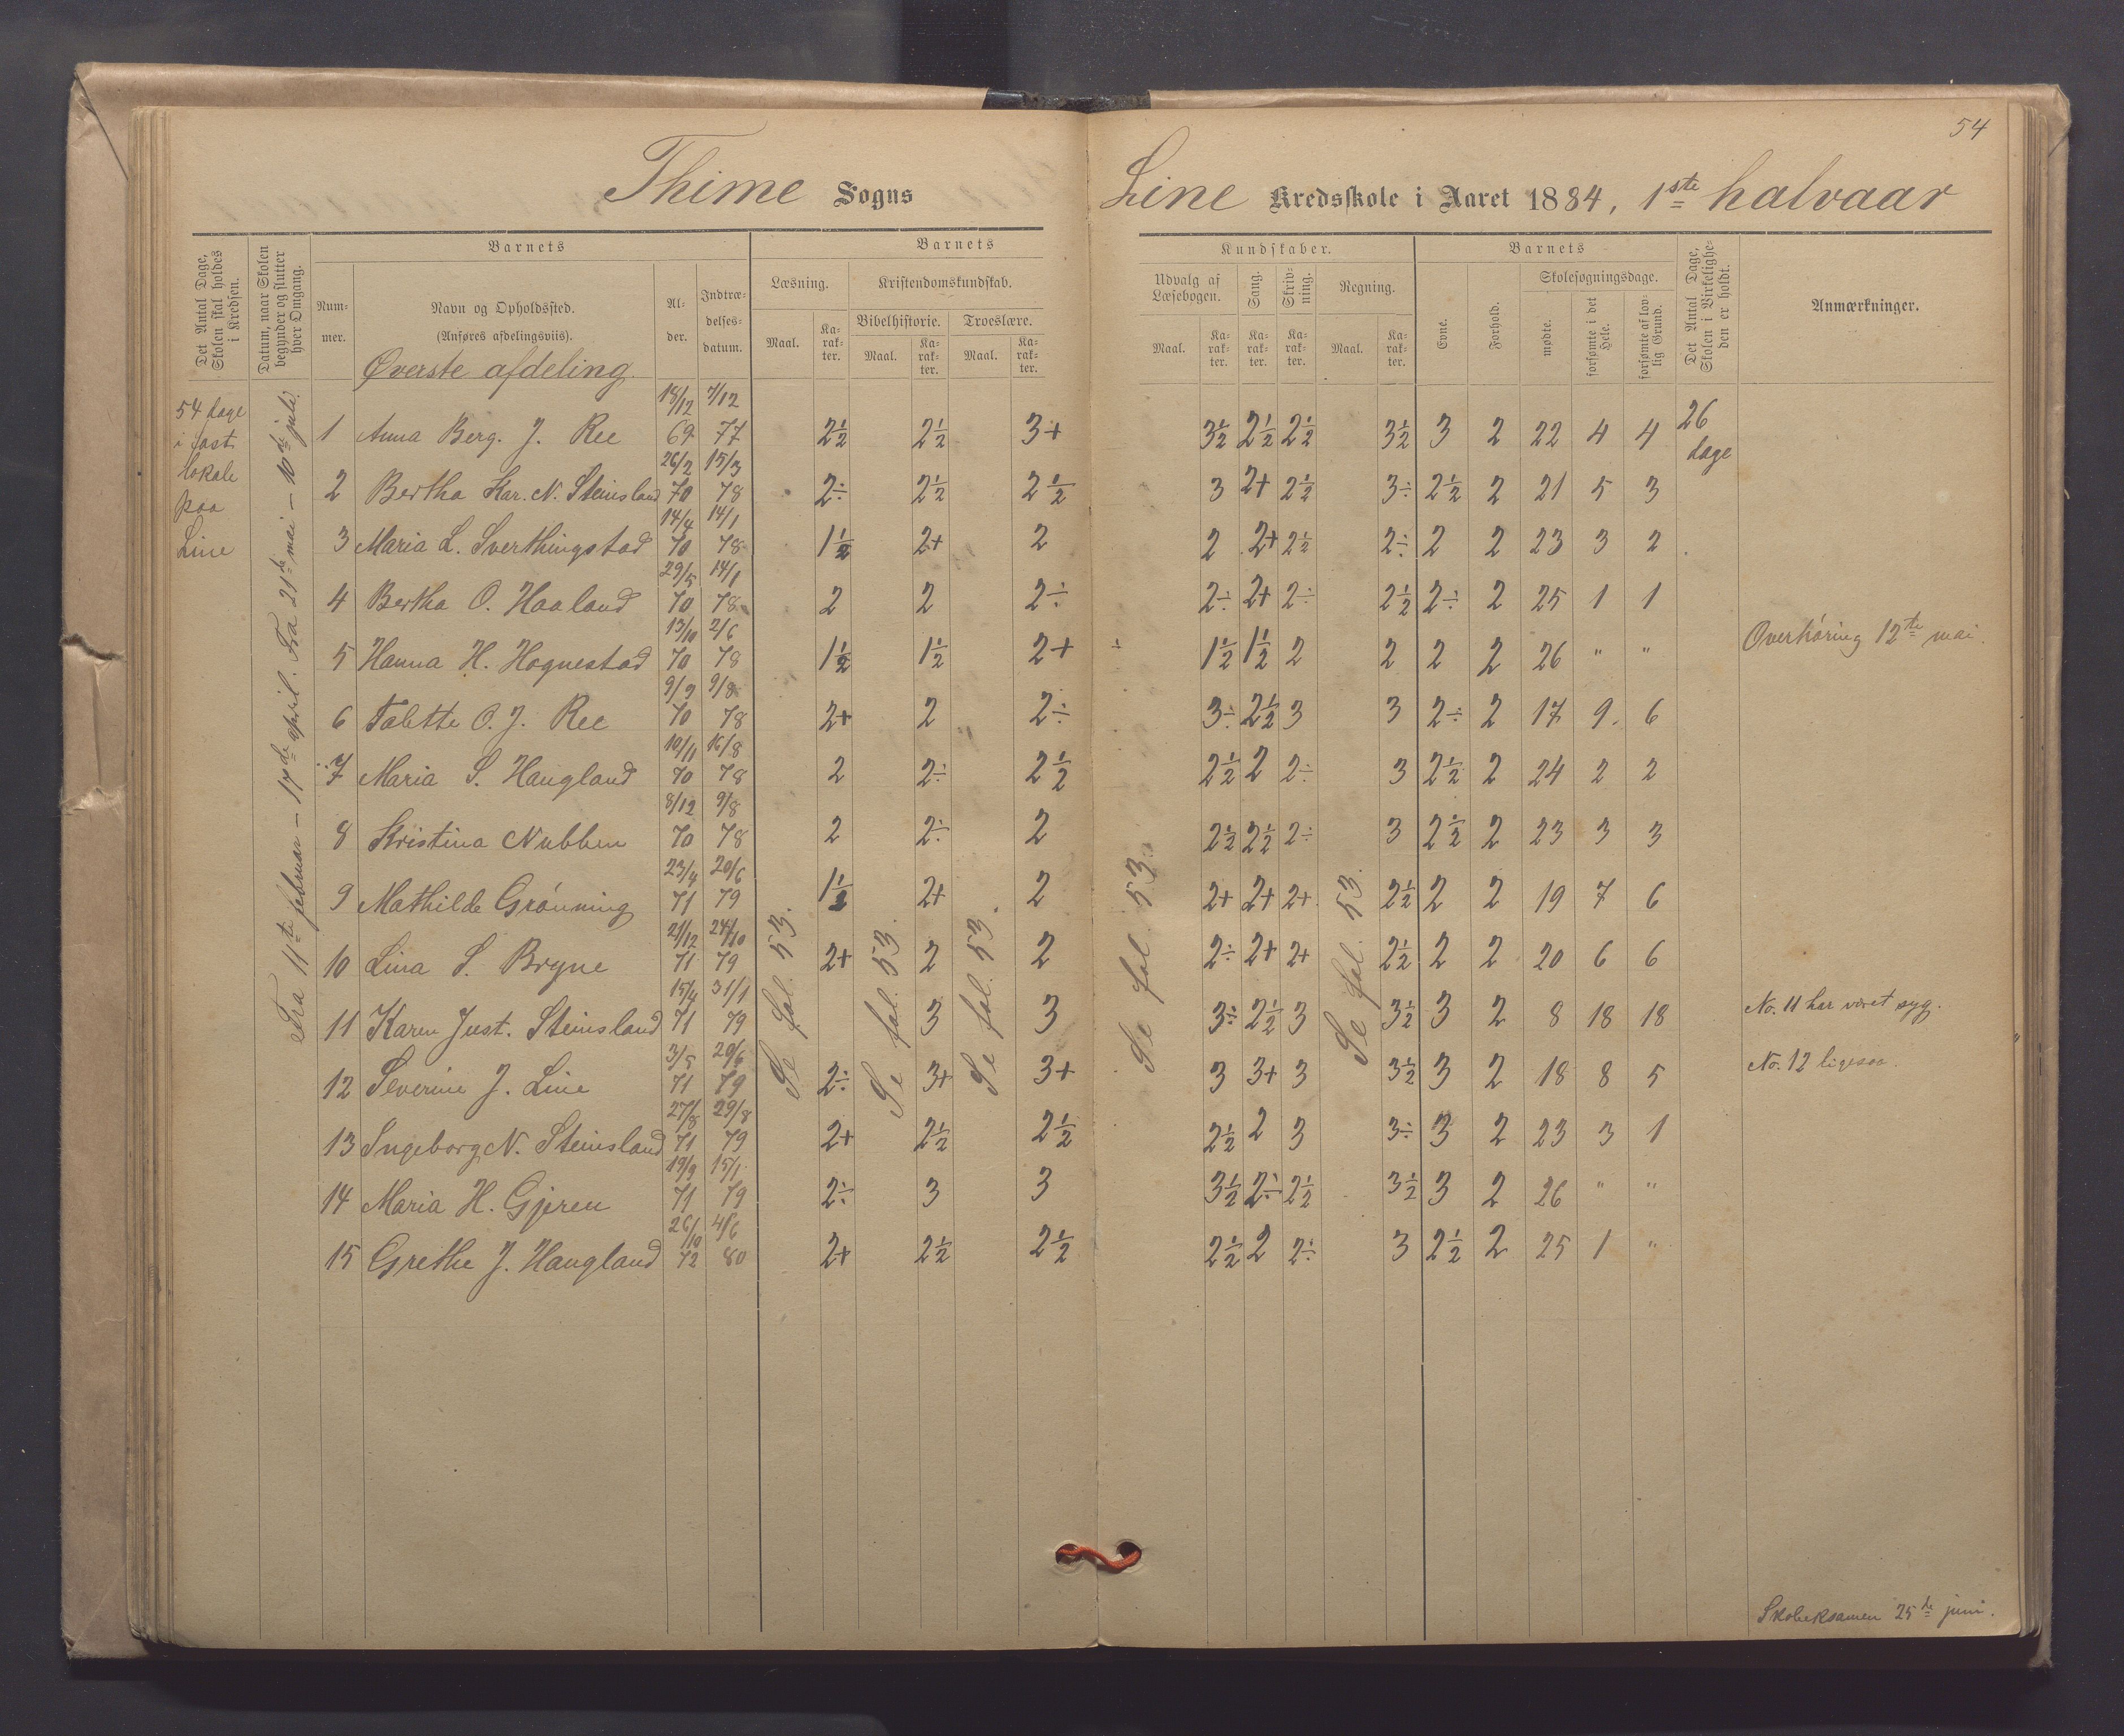 54
Thime Sogns
Line Kredsskole i Aaret 1884, 1ste halvaar
Det Antal Dage, Skolen skal holdes i Kredsen.
Datum, naar Skolen begynder og slutter hver Omgang.
Barnets
Nummer.
Navn og Opholdssted.
(Anføres afdelingsviis).
Øverste afdeling.
Alder.
Indtrædelses-datum.
Barnets
Læsning.
Maal.
Karakter.
Kristendomskundskab.
Bibelhistorie.
Maal.
Karakter.
Troeslære.
Maal.
Karakter.
Kundskaber.
Udvalg af Læsebogen.
Maal.
Karakter.
Sang.
Karakter.
Skrivning.
Karakter.
Regning.
Maal.
Karakter.
Barnets
Evne.
Forhold.
Skolesøgningsdage.
mødte.
forsømte i det Hele.
forsømte af lovlig Grund.
Det Antal Dage, Skolen i Virkeligheden er holdt.
Anmærkninger.
54 dage
i fast
lokale
paa
Line
Fra 11te februar – 17de april. Fra 21de mai – 10de juli.
1 Anna Berg. J. Ree 18/12 69 7/12 77 2½ 2½ 3+ 3½ 2½ 2½ 3½ 3 2 22 4 4 26 dage
2 Bertha Kar. N. Steinsland 26/2 70 15/3 78 2÷ 2½ 2½ 3 2+ 2½ 3÷ 2½ 2 21 5 3
3 Maria L. Sverthingstad 14/4 70 14/1 78 1½ 2+ 2 2 2+ 2½ 2÷ 2 2 23 3 2
4 Bertha O. Haaland 29/5 70 14/1 78 2 2 2÷ 2÷ 2+ 2÷ 2½ 2÷ 2 25 1 1
5 Hanna H. Hognestad 13/10 70 2/6 78 1½ 1½ 2+ ÷ 1½ 1½ 2 2 2 2 26 " " Overhøring 12te mai.
6 Talette O. J. Ree 9/9 70 9/8 78 2+ 2 2÷ 3÷ 2½ 3 3 2÷ 2 17 9 6
7 Maria S. Haugland 10/11 70 16/8 78 2 2÷ 2½ 2½ 2 2÷ 3 2½ 2 24 2 2
8 Kristina Nubben 8/12 70 9/8 78 2 2÷ 2 2½ 2½ 2÷ 3 2½ 2 23 3 3
9 Mathilde Grønning 23/4 71 20/6 79 1½ 2+ 2 2+ 2+ 2+ 2½ 2 2 19 7 6
10 Lina S. Bryne 21/12 71 24/10 79 2+ 2 2 2÷ 2+ 2+ 2½ 2 2 20 6 6
11 Karen Just. Steinsland 15/4 71 31/1 79 3 3 3÷ 2½ 3 3½ 3 2 8 18 18 No. 11 har været syg.
12 Severine J. Line 3/5 71 20/6 79 2÷ 3+ 3+ 3 3+ 3 3½ 3 2 18 8 5 No. 12 ligesaa.
13 Ingeborg N. Steinsland 27/8 71 29/8 79 2+ 2½ 2½ 2½ 2 3 3÷ 3 2 23 3 1
14 Maria H. Gjeren 19/9 71 15/1 79 2÷ 3 3 3½ 2÷ 2½ 3½ 3 2 26 " "
15 Grethe J. Haugland 26/10 72 4/6 80 2+ 2½ 2½ 2½ 2 2÷ 3 2½ 2 25 1 "
Se fol. 53.
Se fol. 53.
Se fol. 53.
Se fol. 53.
Se fol. 53.
Skoleeksamen 25de juni.